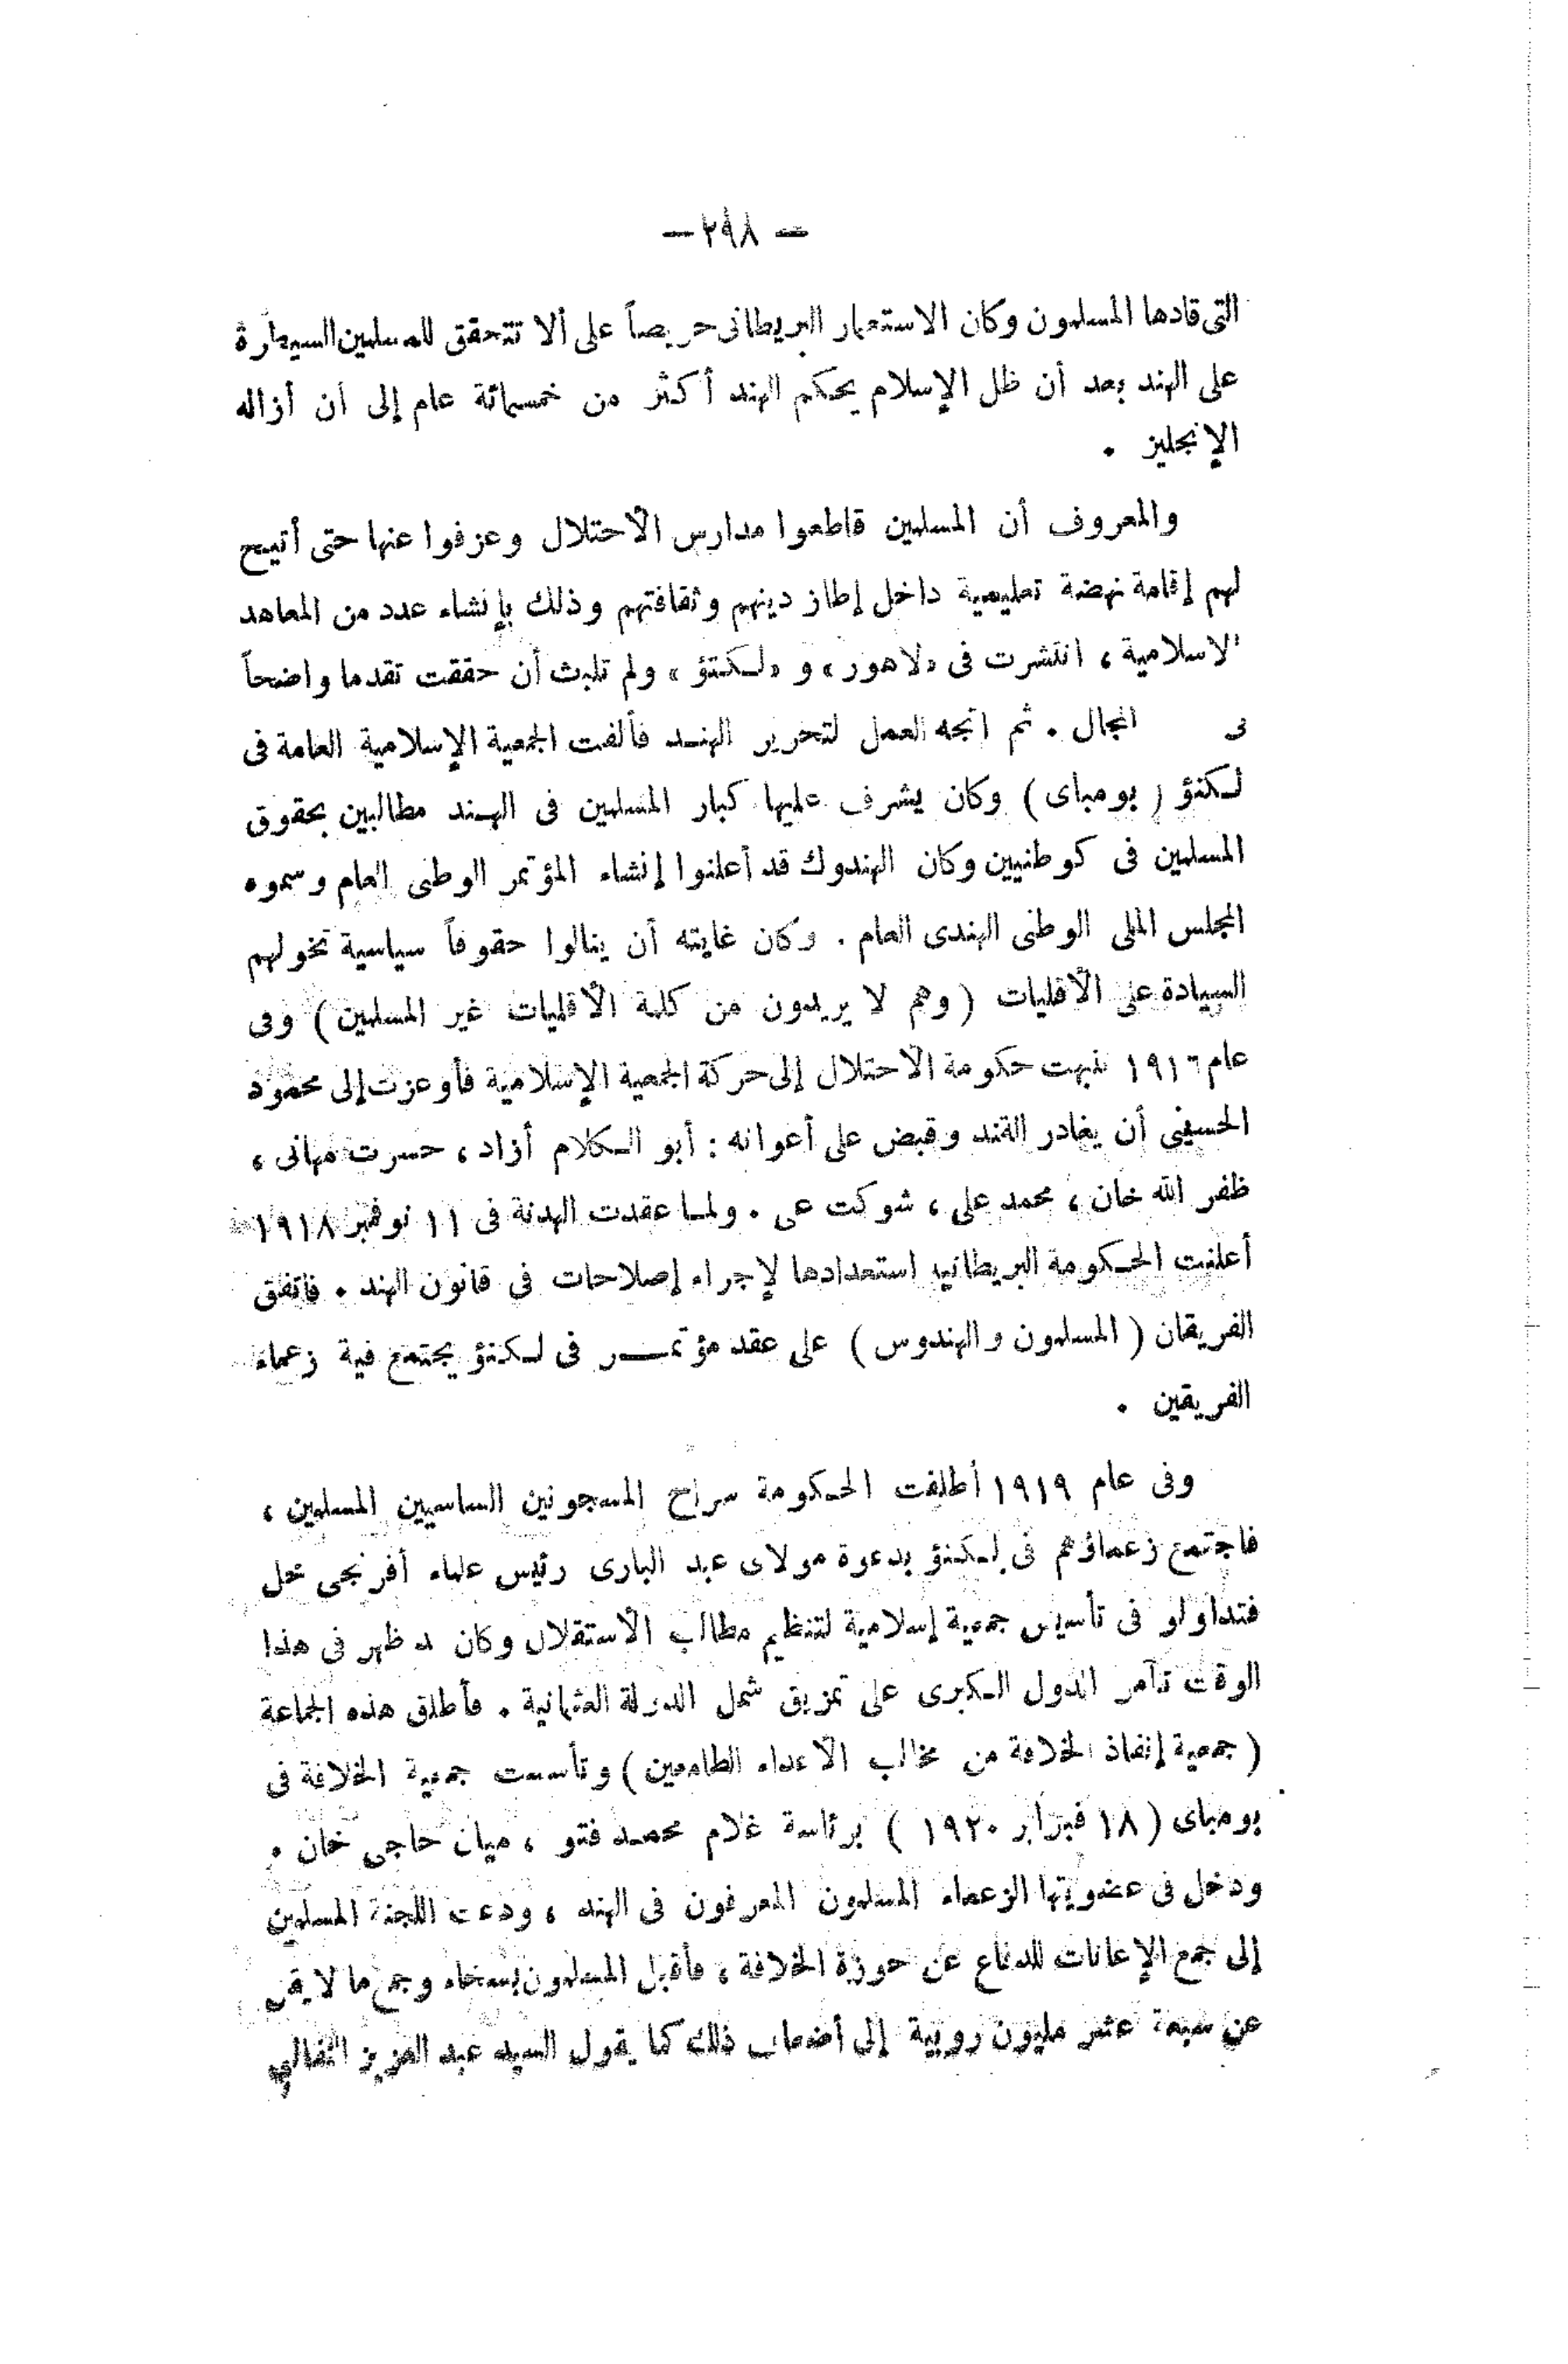 — ٢٩٨ —
التى قادها المسلمون وكان الاستعمار البريطانى حريصاً على ألا تتحقق للمسلمين السيطرة
على الهند بعد أن ظل الإسلام يحكم الهند أكثر من خمسمائة عام إلى أن أزاله
الإنجليز .
والمعروف أن المسلمين قاطعوا مدارس الاحتلال وعزفوا عنها حتى أتيح
لهم إقامة نهضة تعليمية داخل إطار دينهم وثقافتهم وذلك بإنشاء عدد من المعاهد
الاسلامية ، انتشرت فى «لاهور» و «لكنؤ» ولم تلبث أن حققت تقدما واضحاً
فى المجال . ثم اتجه العمل لتحرير الهند فألفت الجمعية الإسلامية العامة فى
لكنؤ ( بومباى ) وكان يشرف عليها كبار المسلمين فى الهند مطالبين بحقوق
المسلمين فى كوطنيين وكان الهندوك قد أعلنوا إنشاء المؤتمر الوطنى العام وسموه
المجلس الملى الوطنى الهندى العام . وكان غايته أن ينالوا حقوقاً سياسية تخولهم
السيادة على الأقليات ( وهم لا يريدون من كلمة الأقليات غير المسلمين ) وفى
عام ١٩١٦ نبهت حكومة الاحتلال إلى حركة الجمعية الإسلامية فأوعزت إلى محمود
الحسينى أن يغادر الهند وقبض على أعوانه : أبو الكلام أزاد ، حسرت مهانى ،
ظفر الله خان ، محمد على ، شوكت عى . ولما عقدت الهدنة فى ١١ نوفمبر ١٩١٨
أعلنت الحكومة البريطانيه استعدادها لإجراء إصلاحات فى قانون الهند . فاتفق
الفريقان ( المسلمون والهندوس ) على عقد مؤتمر فى لكنؤ يجتمع فية زعماء
الفريقين .
وفى عام ١٩١٩ أطلقت الحكومة سراح المسجونين الساسيين المسلمين ،
فاجتمع زعماؤهم فى لكنؤ بدعوة مولاى عبد البارى رئيس علماء أفرنجى محل
فتداولو فى تأسيس جمعية إسلامية لتنظيم مطالب الاستقلال وكان ظهر فى هذا
الوقت تآمر الدول الكبرى على تمزيق شمل الدولة العثمانية . فأطلق هذه الجماعة
( جمعية إنقاذ الخلافة من مخالب الأعداء الطامعين ) وتأسست جمعية الخلافة فى
بومباى ( ١٨ فبراير ١٩٢٠ ) برئاسة غلام محمد فتو ، ميان حاجى خان .
ودخل فى عضويتها الزعماء المسلمون المعرفون فى الهند ، ودعت اللجنة المسلمين
إلى جمع الإعانات للدفاع عن حوزة الخلافة ، فأقبل المسلمون بسخاء وجمع ما لا يقل
عن سبعة عشر مليون روبية إلى أضعاب ذلك كما يقول السيد عبد العزيز الثعالبي